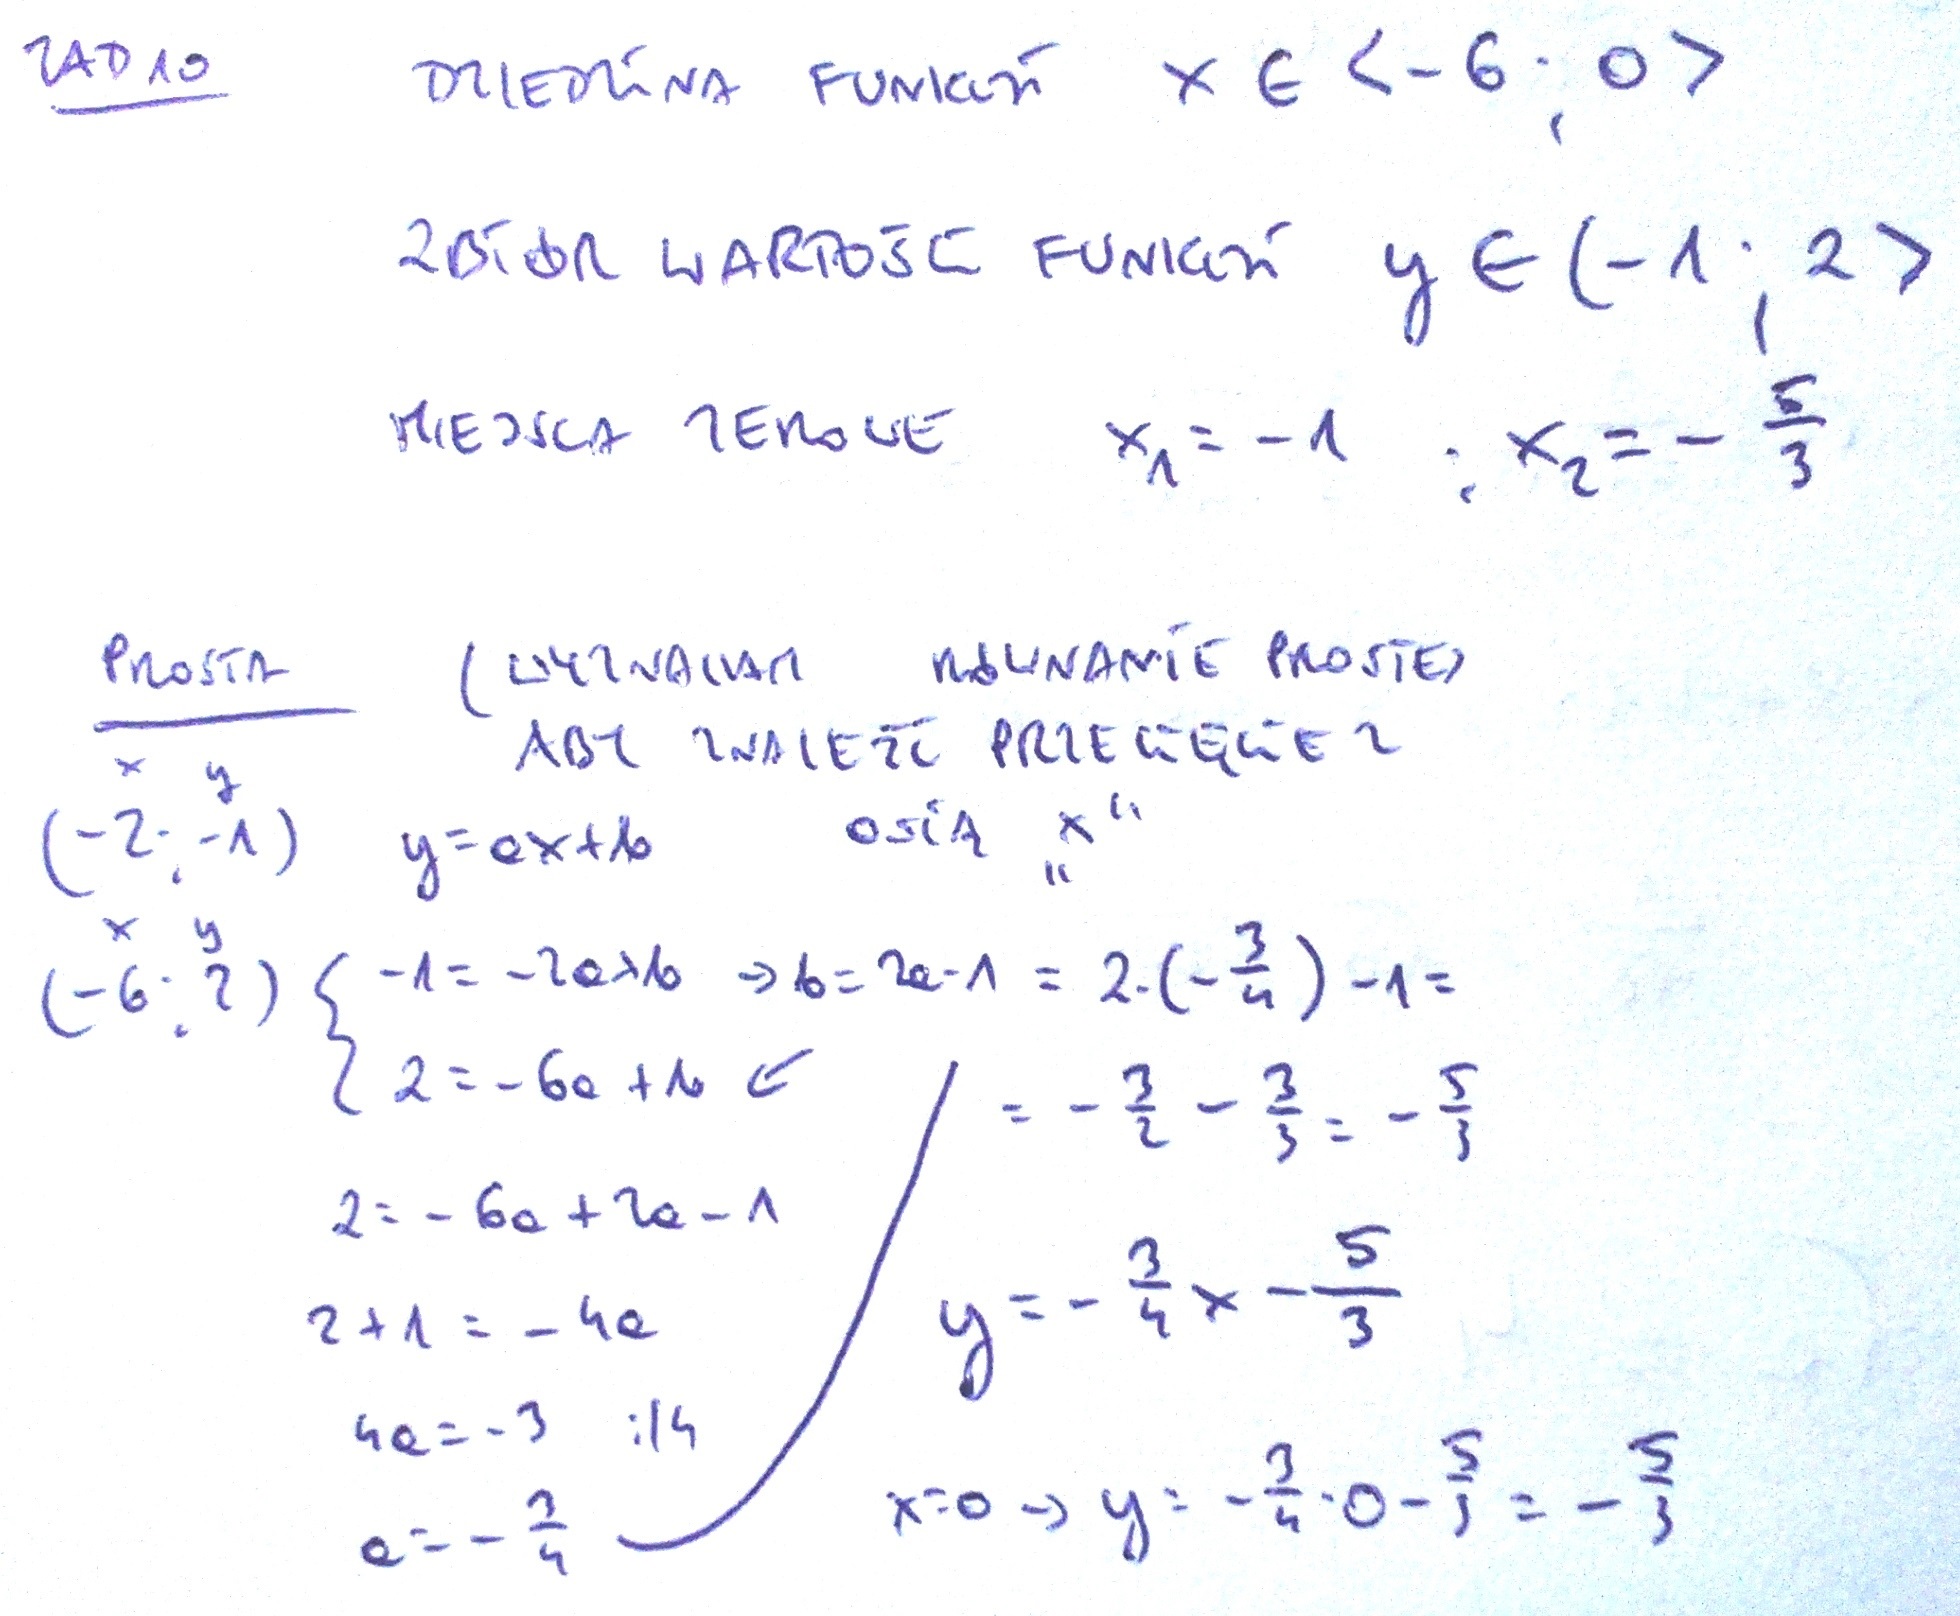 ZAD 10 DZIEDZINA FUNKCJI x ∈ <-6; 0>
ZBIÓR WARTOŚCI FUNKCJI y ∈ (-1; 2>
MIEJSCA ZEROWE x₁ = -1 ; x₂ = - 5/3
PROSTA (WYZNACZAM RÓWNANIE PROSTEJ
ABY ZNALEŹĆ PRZECIĘCIE Z
x y
(-2; -1) y=ax+b OSIĄ „x"
x y
(-6; 2) { -1 = -2a+b → b = 2a-1 = 2·(-3/4) -1 =
2 = -6a + b ← = - 3/2 - 3/3 = - 5/3
2 = -6a + 2a - 1
y = - 3/4 x - 5/3
2+1 = -4a
4a = -3 :/4
x=0 → y = - 3/4 · 0 - 5/3 = - 5/3
a = - 3/4